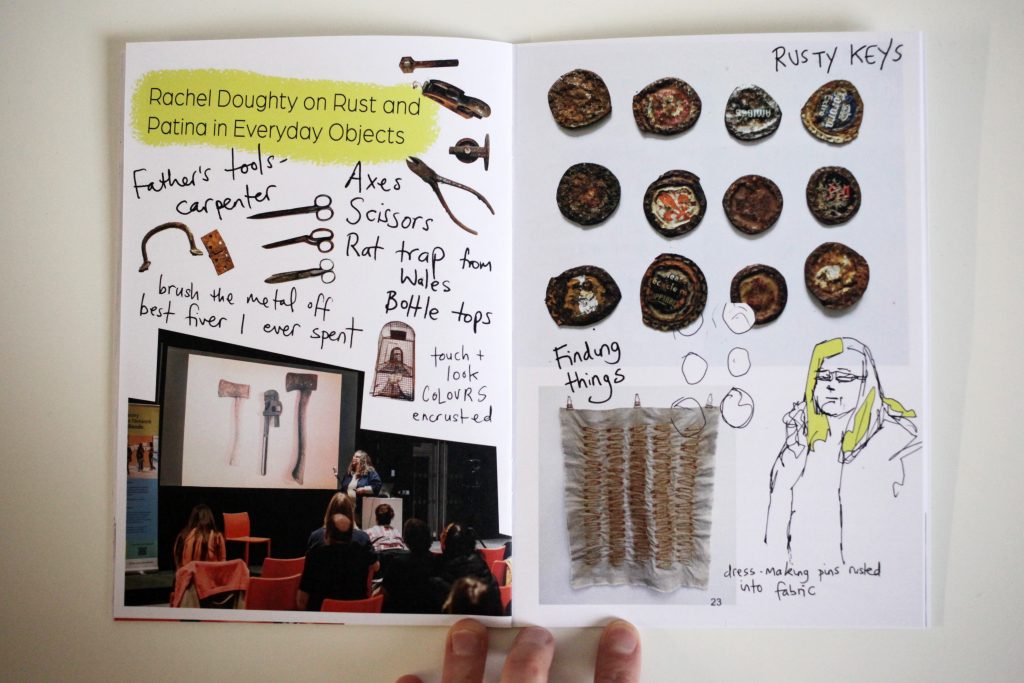 Rachel Doughty on Rust and
Patina in Everyday Objects
Father's tools-
carpenter
Axes
Scissors
Rat trap from
Wales
Bottle tops
brush the metal off
best fiver I ever spent
touch +
look
COLOURS
encrusted
RUSTY KEYS
Finding
things
dress-making pins rusted
into fabric
23